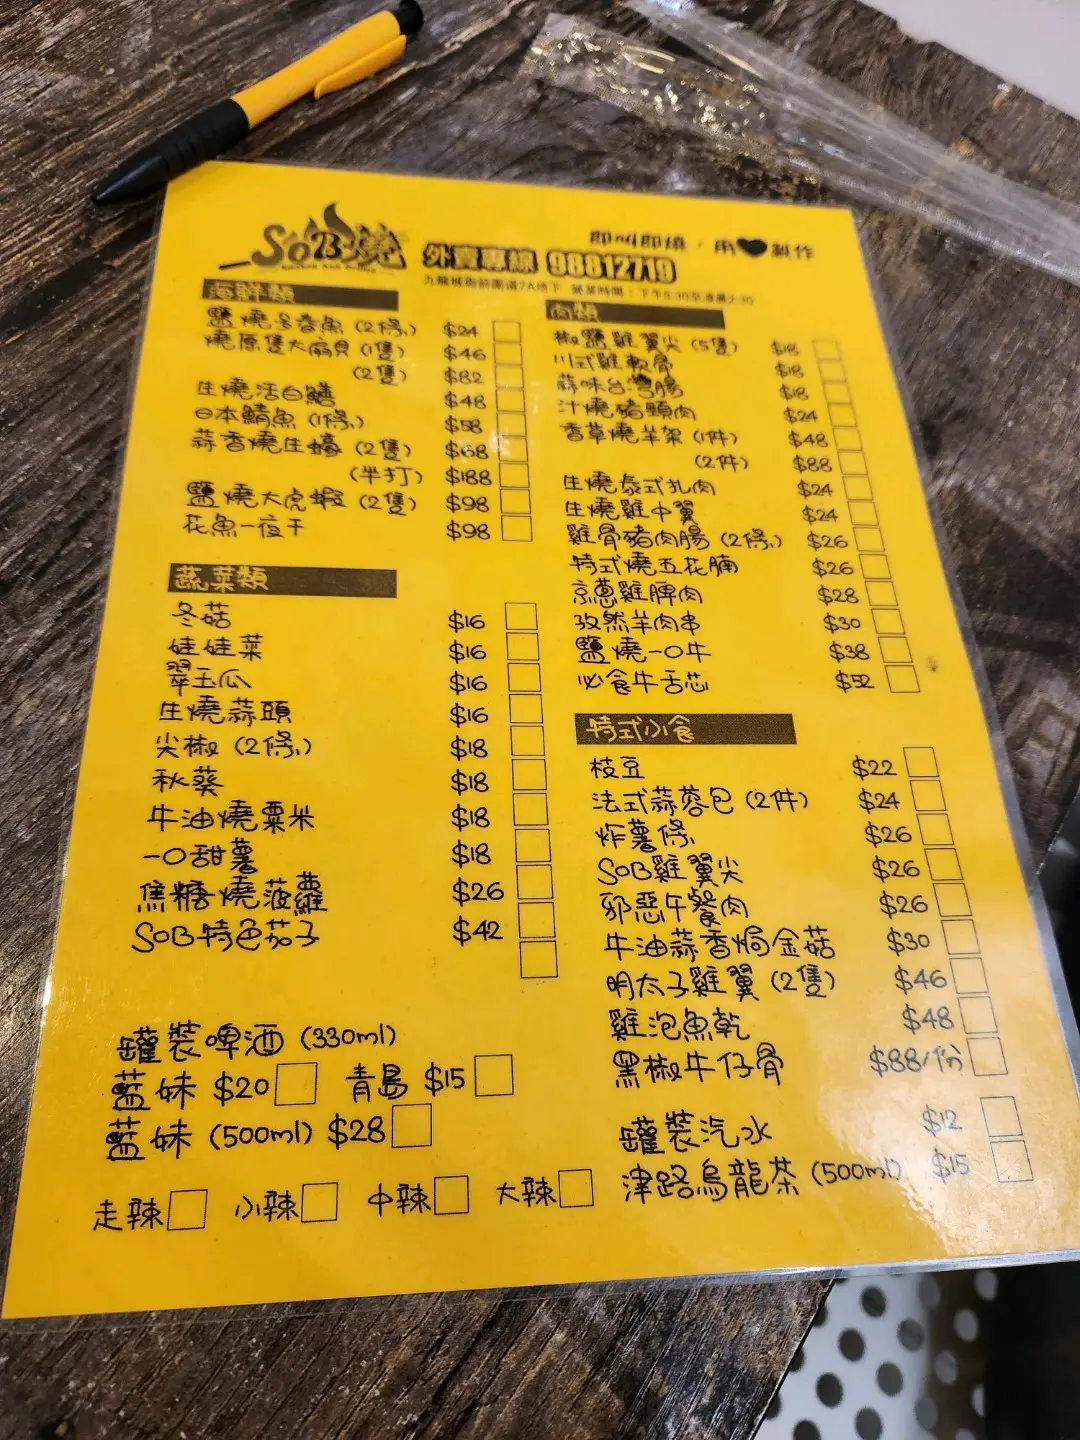 SOB燒
即叫即燒，用♥製作
外賣專線 98812719
九龍城衙前圍道7A地下 營業時間：下午5:30至凌晨2:30
海鮮類
鹽燒多春魚 (2條) $24
燒原隻大扇貝 (1隻) $46
(2隻) $82
生燒活白鱔 $48
日本鯖魚 (1條) $58
蒜香燒生蠔 (2隻) $68
(半打) $188
鹽燒大虎蝦 (2隻) $98
花魚一夜干 $98
蔬菜類
冬菇 $16
娃娃菜 $16
翠玉瓜 $16
生燒蒜頭 $16
尖椒 (2條) $18
秋葵 $18
牛油燒粟米 $18
一口甜薯 $18
焦糖燒菠蘿 $26
SOB特色茄子 $42
罐裝啤酒 (330ml)
藍妹 $20 青島 $15
藍妹 (500ml) $28
走辣 小辣 中辣 大辣
肉類
椒鹽雞翼尖 (5隻) $18
川式雞軟骨 $18
蒜味台灣腸 $18
汁燒豬頸肉 $24
香草燒羊架 (1件) $48
(2件) $88
生燒泰式扎肉 $24
生燒雞中翼 $24
雞骨豬肉腸 (2條) $26
特式燒五花腩 $26
京蔥雞脾肉 $28
孜然羊肉串 $30
鹽燒一口牛 $38
必食牛舌芯 $52
特式小食
枝豆 $22
法式蒜蓉包 (2件) $24
炸薯條 $26
SOB雞翼尖 $26
邪惡午餐肉 $26
牛油蒜香焗金菇 $30
明太子雞翼 (2隻) $46
雞泡魚乾 $48
黑椒牛仔骨 $88/份
罐裝汽水 $12
津路烏龍茶 (500ml) $15